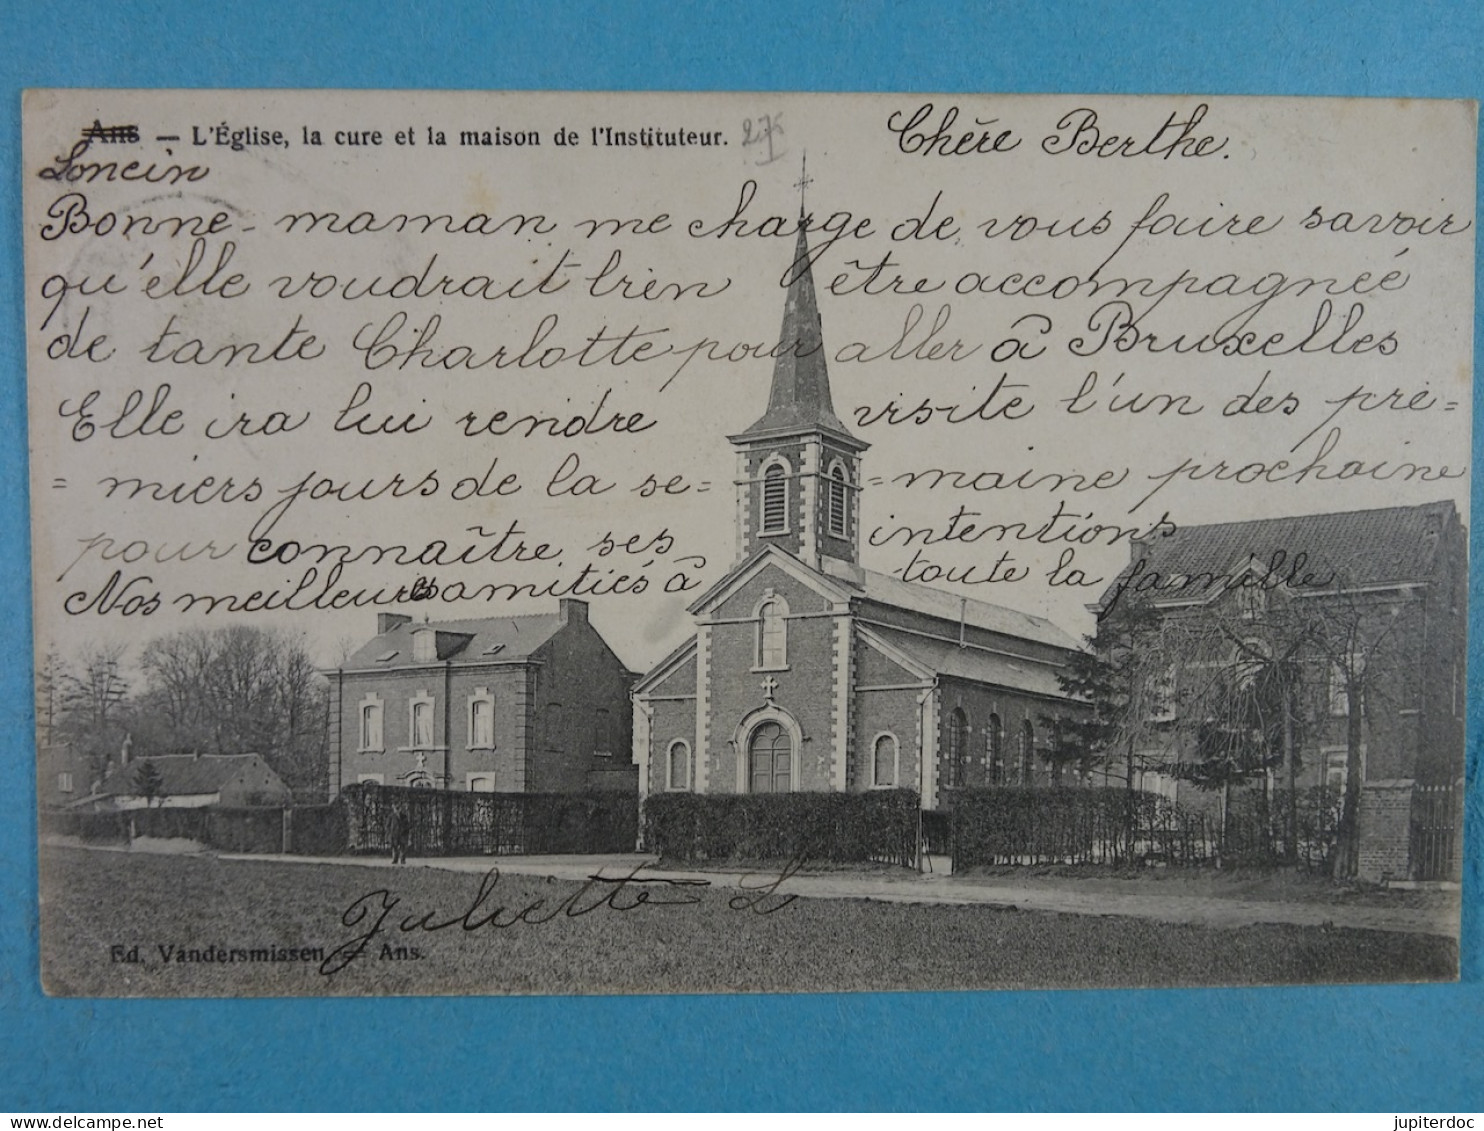 ~~Ans~~ — L'Église, la cure et la maison de l'Instituteur. 275
Loncin
Chére Berthe.
Bonne-maman me charge de vous faire savoir
qu'elle voudrait bien être accompagnée
de tante Charlotte pour aller à Bruxelles
Elle ira lui rendre visite l'un des pre=
=miers jours de la se= =maine prochaine
pour connaître ses intentions
Nos meilleures amitiés à toute la famille
Juliette L.
Ed. Vandersmissen — Ans.
jupiterdoc